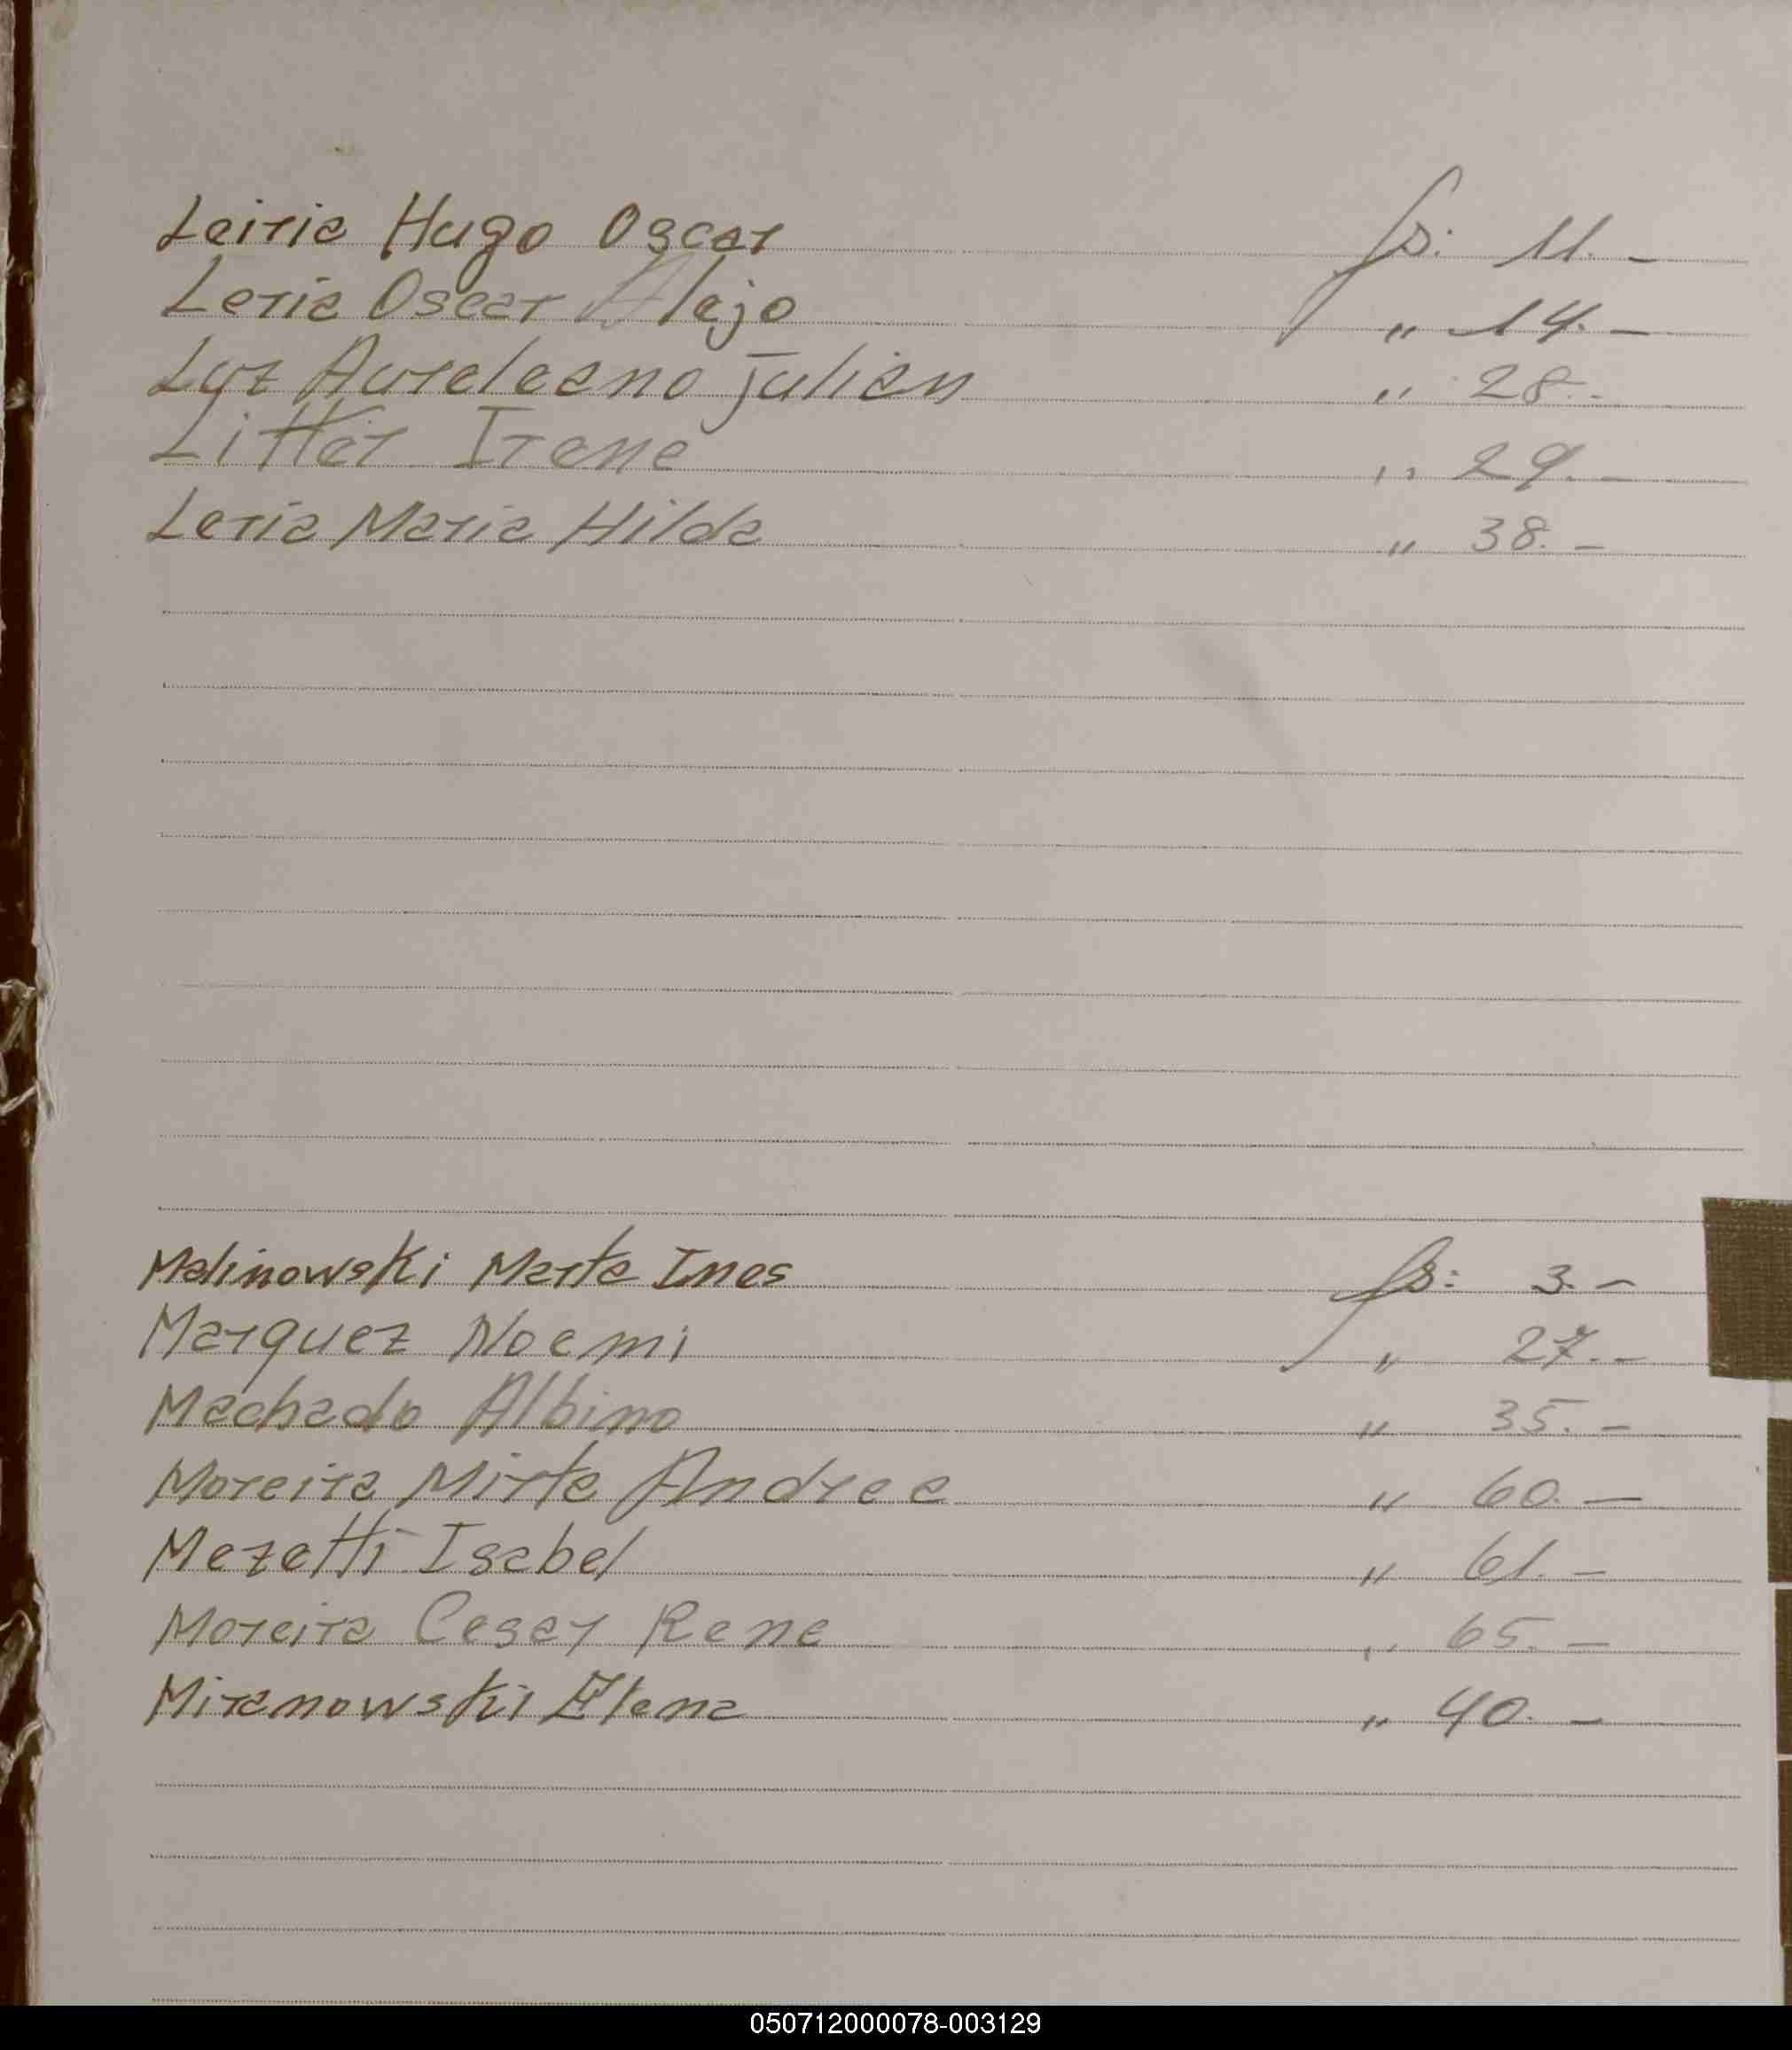 Leiria Hugo Oscar fs: 11.-
Leria Oscar Alejo " 14.-
Luz Aureleano Julian " 28.-
Litter Irene " 29.-
Leria Maria Hilda " 38.-
Malinowski Marta Ines fs: 3.-
Marquez Noemi " 27.-
Machado Albino " 35.-
Moreira Mirta Andrea " 60.-
Mezetti Isabel " 61.-
Moreira Cesar Rene " 65.-
Miranowski Elena " 40.-
050712000078-003129